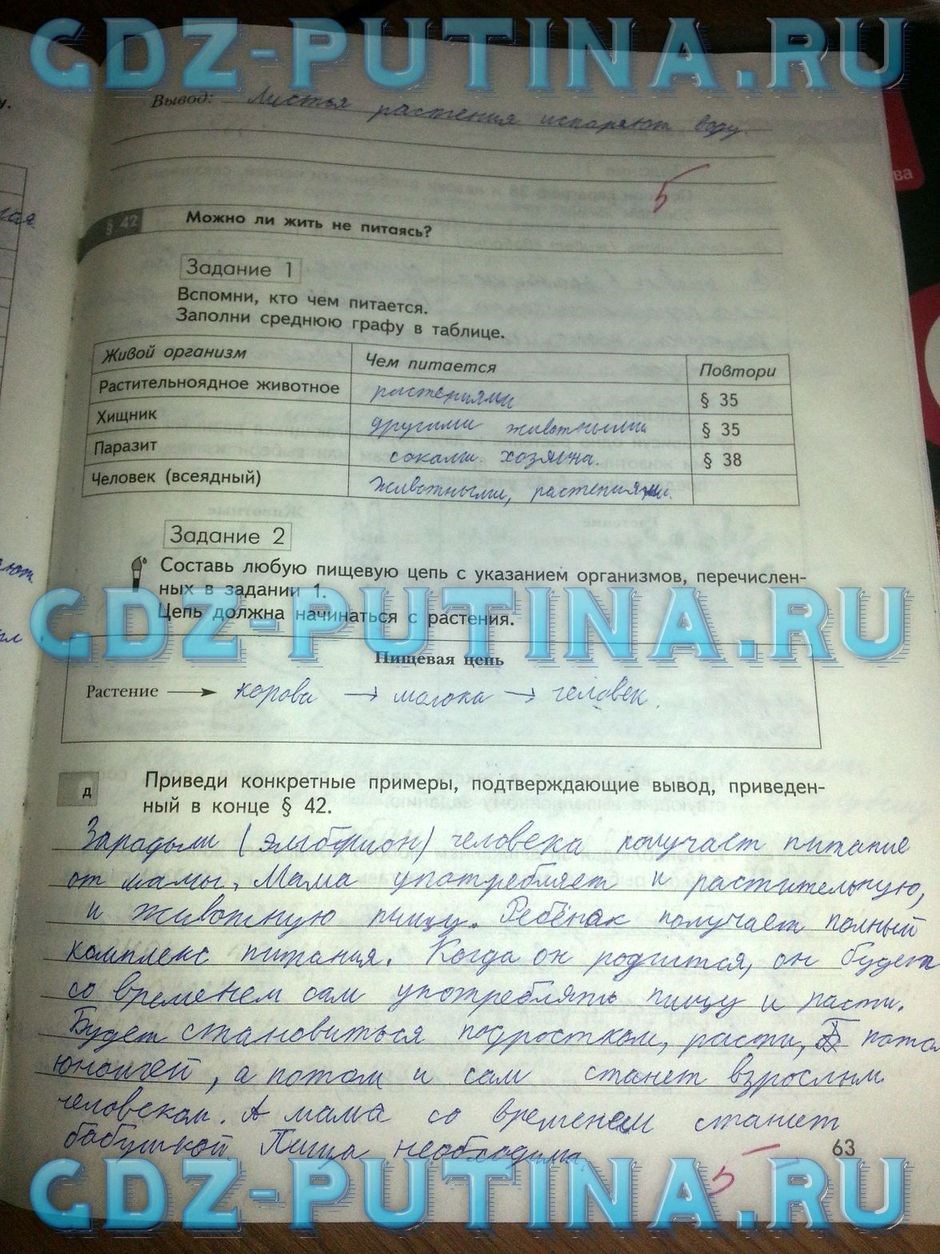 GDZ-PUTINA.RU
Вывод: Листья растения испаряют воду.
5
§ 42 Можно ли жить не питаясь?
Задание 1
Вспомни, кто чем питается.
Заполни среднюю графу в таблице.
Живой организм Чем питается Повтори
Растительноядное животное растениями § 35
Хищник другими животными § 35
Паразит соками хозяина. § 38
Человек (всеядный) животными, растениями.
Задание 2
Составь любую пищевую цепь с указанием организмов, перечислен-
ных в задании 1.
Цепь должна начинаться с растения.
GDZ-PUTINA.RU
Пищевая цепь
Растение → корова → молоко → человек.
д Приведи конкретные примеры, подтверждающие вывод, приведен-
ный в конце § 42.
Зародыш (эмбрион) человека получает питание
от мамы. Мама употребляет и растительную,
и животную пищу. Ребёнок получает полный
комплекс питания. Когда он родится, он будет
со временем сам употреблять пищу и расти.
Будет становиться подростком, расти, потом
юношей, а потом и сам станет взрослым
человеком. А мама со временем станет
бабушкой Пища необходима.
63
5
GDZ-PUTINA.RU